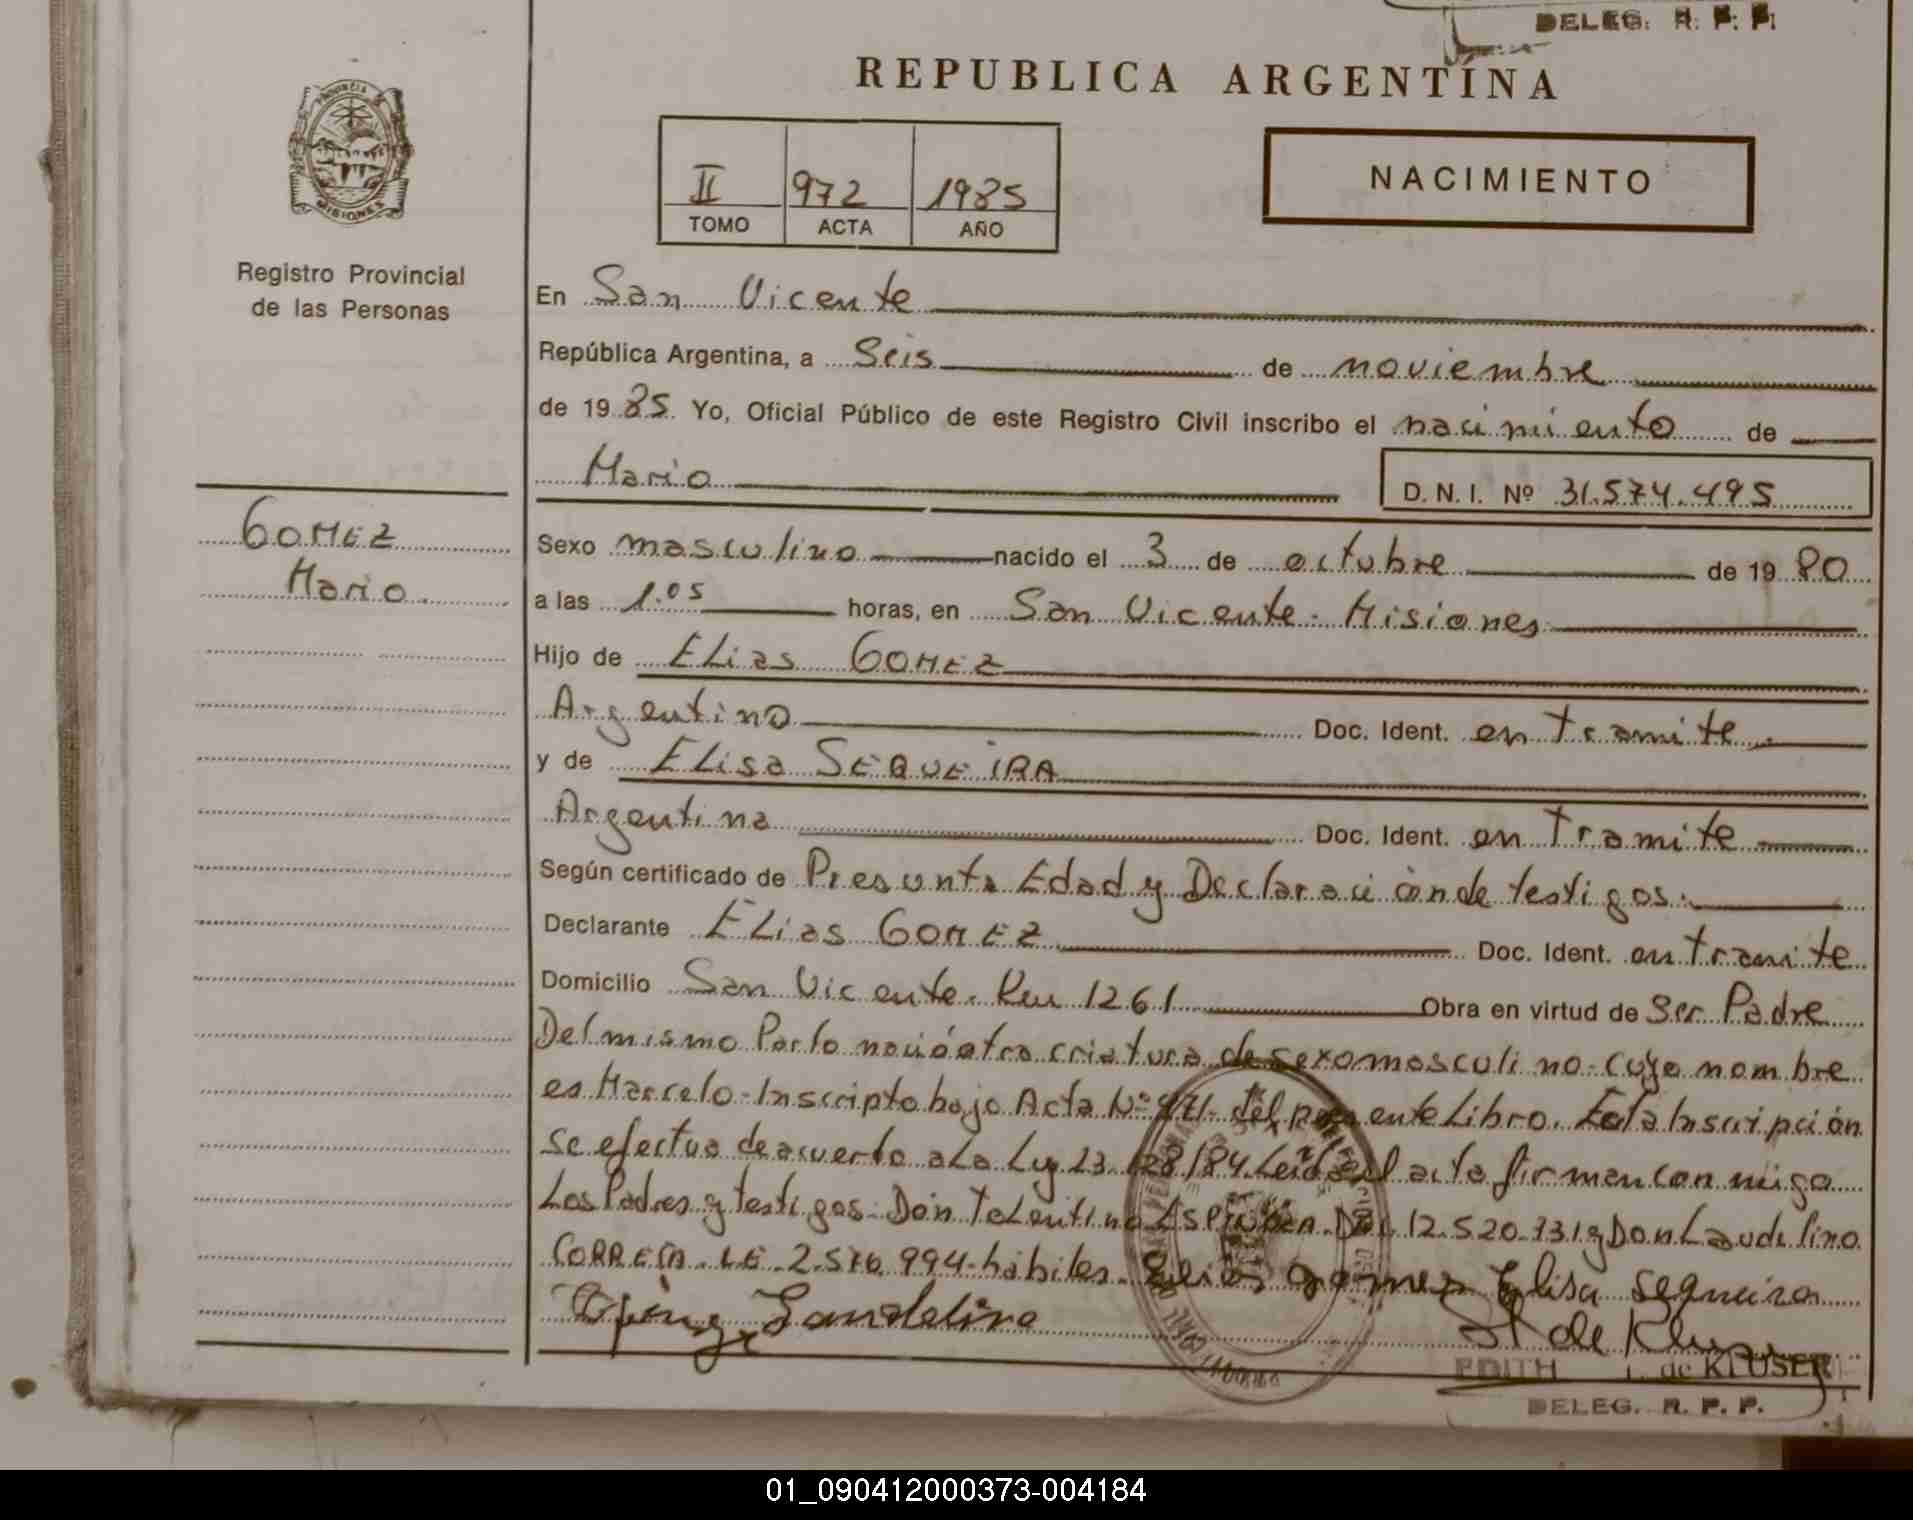 DELEG. R. P. P.
REPUBLICA ARGENTINA
PROVINCIA DE
MISIONES
II 972 1985
TOMO ACTA AÑO
NACIMIENTO
Registro Provincial
de las Personas
En San Vicente
República Argentina, a Seis de noviembre
de 1985. Yo, Oficial Público de este Registro Civil inscribo el nacimiento de
Mario D.N.I. Nº 31.574.495
GOMEZ
Mario.
Sexo masculino nacido el 3 de octubre de 1980
a las 1.05 horas, en San Vicente - Misiones
Hijo de Elias GOMEZ
Argentino Doc. Ident. en Tramite
y de Elisa SEQUEIRA
Argentina Doc. Ident. en Tramite
Según certificado de Presunta Edad y Declaración de testigos.
Declarante Elias GOMEZ Doc. Ident. en Tramite
Domicilio San Vicente. Km 1261 Obra en virtud de Ser Padre
Del mismo Parto nació otra criatura de sexo masculino cuyo nombre
es Marcelo - Inscripto bajo Acta Nº 971 - del presente Libro. Esta Inscripción
se efectua de acuerdo a La Ley 23.128/84. Leida el acta firman conmigo
Los Padres y testigos: Don Tolentino 12.520.731 y Don Laudelino
CORREIA. LE. 994 - hábiles. Elias gomez Elisa sequeira
Laudelino
EDITH de KLUSER
DELEG. R. P. P.
01_090412000373-004184